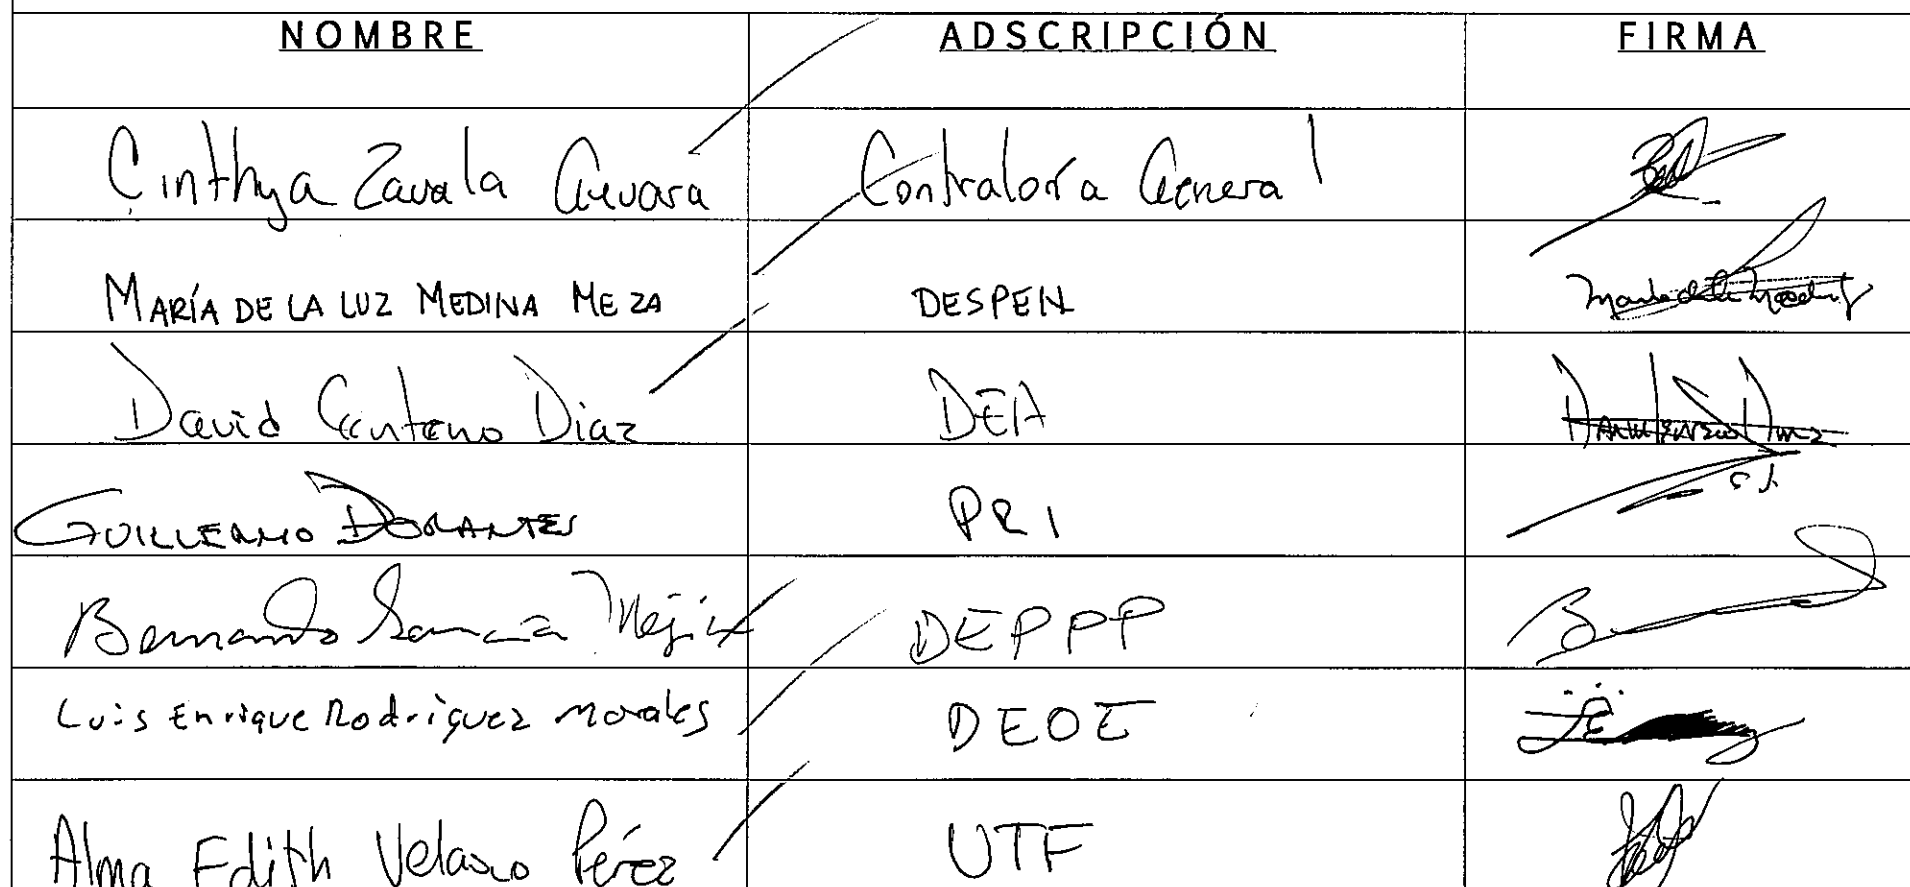 NOMBRE ADSCRIPCIÓN FIRMA
Cinthya Zavala Guevara Contraloría General
MARÍA DE LA LUZ MEDINA MEZA DESPEN
David Centeno Diaz DEA
GUILLERMO DORANTES PRI
Bernardo Mejía DEPPP
Luis Enrique Rodriguez Morales DEOE
Alma Edith Velasco Pérez UTF